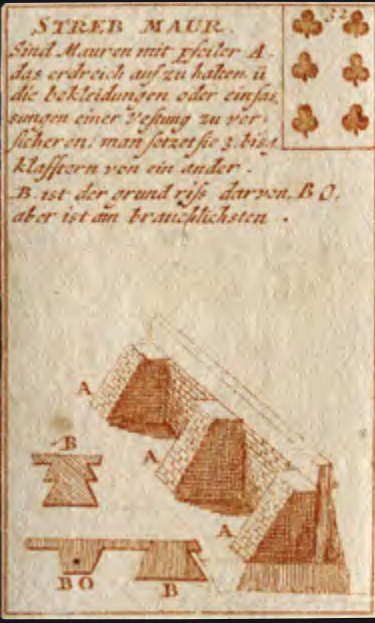 STREB MAUR.
32
Sind Mauren mit pfeiler A.
das erdreich auf zu halten ū
die bekleidungen oder einfas
sungen einer Vestung zu ver
sicheren: man setzet sie 3. bis 4
klafftern von ein ander.
B. ist der grund riss darvon. BO.
aber ist am brauchlichsten.
A
A
A
B
BO
B